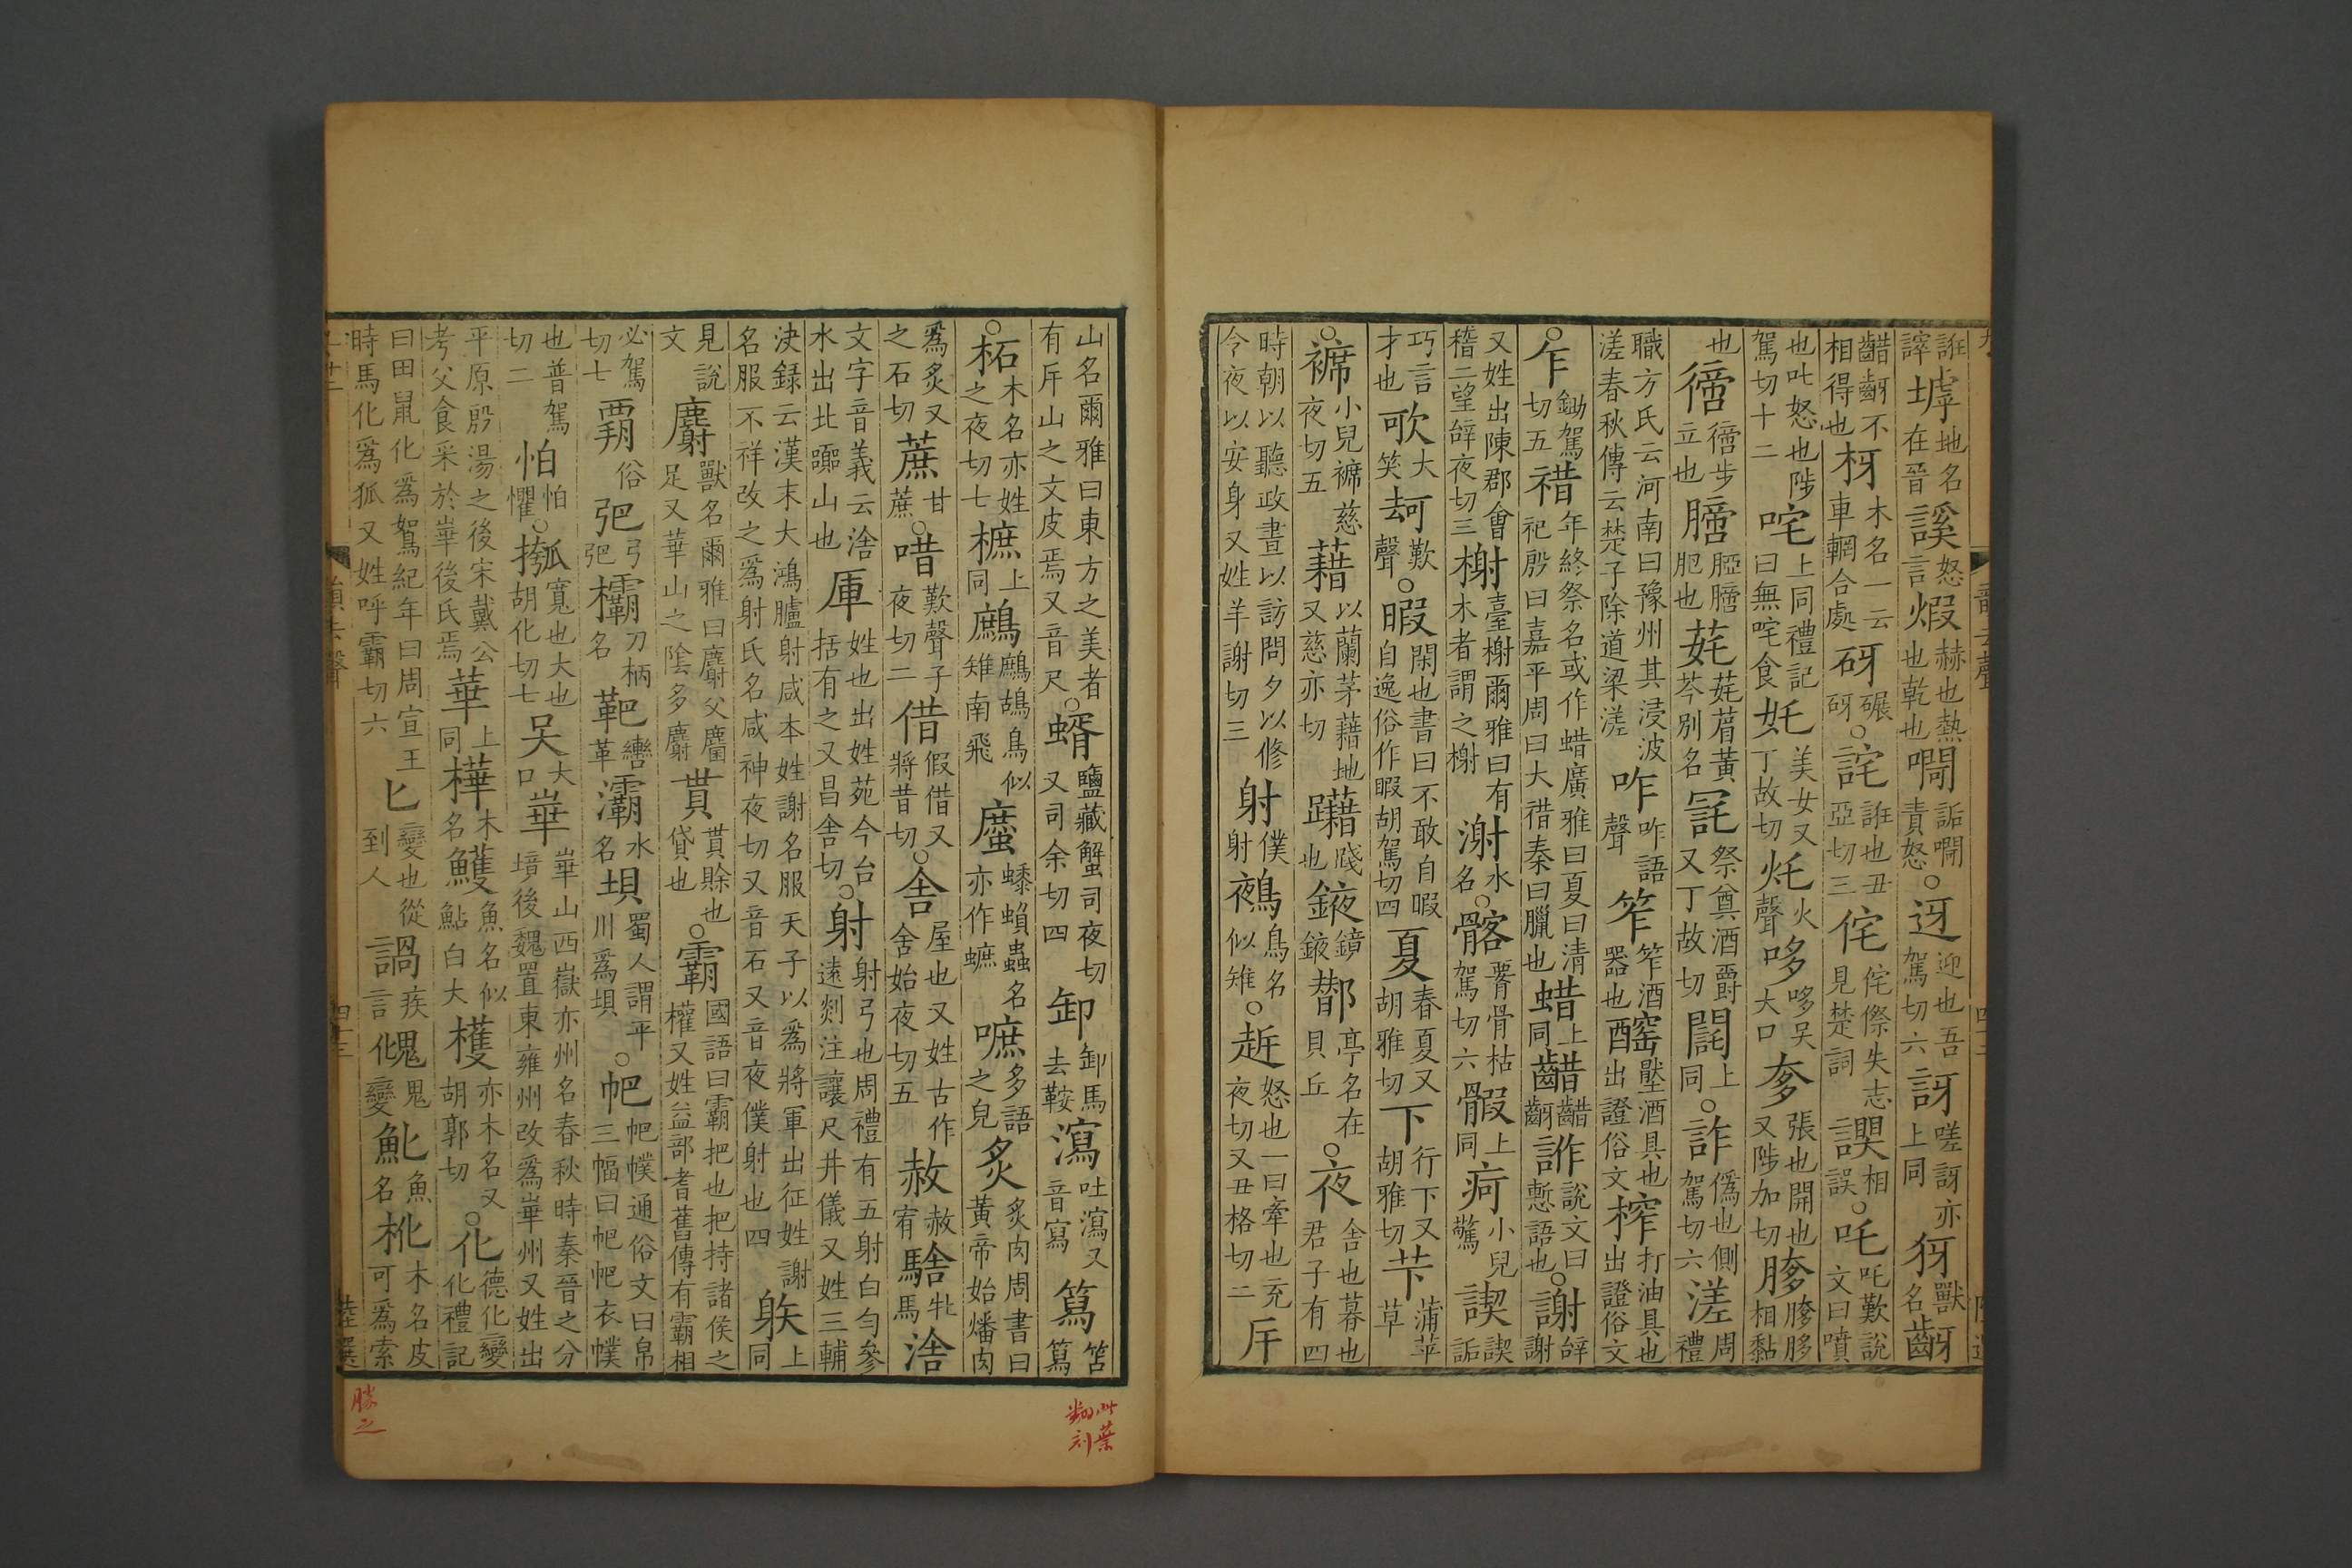 誑諕墟地名在晉謑怒言煆赫也熱也乾也𧬊詬𧬊責怒○迓迎也吾駕切六訝嗟訝亦上同犽獸名齖
齰齖不相得也枒木名一云車輞合處砑碾砑○詫誑也丑亞切三侘侘傺失志見楚詞䛩相誤○吒吒歎說文曰噴
也叱怒也陟駕切十二咤上同禮記曰無咤食奼美女又丁故切灹火聲哆哆吴大口奓張也開也又陟加切䐒䐒䏧相黏
也𢕑𢕑步立也膪䏶膪肥也𦯔𦯔葿黃芩別名䆛祭奠酒爵又丁故切䦯上同○詐僞也側駕切六溠周禮
職方氏云河南曰豫州其浸波溠春秋傳云楚子除道梁溠咋咋語聲笮笮酒器也醡壓酒具也出證俗文榨打油具也出證俗文
○乍鋤駕切五䄍年終祭名或作蜡廣雅曰夏曰清祀殷曰嘉平周曰大䄍秦曰臘也蜡上同齰齰齖詐說文曰慙語也○謝辝謝
又姓出陳郡會稽二望辝夜切三榭臺榭爾雅曰有木者謂之榭㴬水名○髂䯊骨枯駕切六䯊上同疴小兒驚䛿䛿詬
巧言才也歌大笑㰤歎聲○暇閑也書曰不敢自暇自逸俗作睱胡駕切四夏春夏又胡雅切下行下又胡雅切芐蒲苹草
○褯小兒褯慈夜切五藉以蘭茅藉地又慈亦切躤踐也䤳鏡䤳䣢亭名在貝丘○夜舍也暮也君子有四
時朝以聽政晝以訪問夕以修今夜以安身又姓羊謝切三射僕射鵺鳥名似雉○趀怒也一曰牽也充夜切又丑格切二㡿
山名爾雅曰東方之美者有㡿山之文皮焉又音尺○蝑鹽藏蟹司夜切又司余切四卸卸馬去鞍瀉吐瀉又音寫篤笘篤
○柘木名亦姓之夜切七樜上同鷓鷓鴣鳥似雉南飛䗪蟍蟘蟲名亦作蟅嗻多語之皃炙炙肉周書曰黃帝始燔肉
爲炙又之石切蔗甘蔗○唶歎聲子夜切二借假借又將昔切○舍屋也又姓古作舎始夜切五赦赦宥騇牝馬涻
文字音義云涻水出北嚻山也厙姓也出姓苑今台括有之又昌舍切○射射弓也周禮有五射白勻參遠剡注讓尺井儀又姓三輔
決錄云漢末大鴻臚射咸本姓謝名服天子以爲將軍出征姓謝名服不祥改之爲射氏名咸神夜切又音石又音夜僕射也四䠶上同
見說文麝獸名爾雅曰麝父麕足又華山之陰多麝貰貰賖也貸也○霸國語曰霸把也把持諸侯之權又姓益部耆舊傳有霸相
必駕切七覇俗弝弓弝欛刀柄名靶轡革灞水名垻蜀人謂平川爲垻○帊帊幞通俗文曰帛三幅曰帊帊衣幞
也普駕切二怕怕懼○摦寬也大也胡化切七吴大口崋崋山西嶽亦州名春秋時秦晉之分境後魏置東雍州改爲崋州又姓出
平原殷湯之後宋戴公考父食采於崋後氏焉華上同樺木名鱯魚名似鮎白大檴亦木名又胡郭切○化德化變化禮記
曰田鼠化爲鴽紀年曰周宣王時馬化爲狐又姓呼霸切六匕變也從到人𧪮疾言𩲏鬼變魤魚名杹木名皮可爲索
此葉
翻刻
勝之